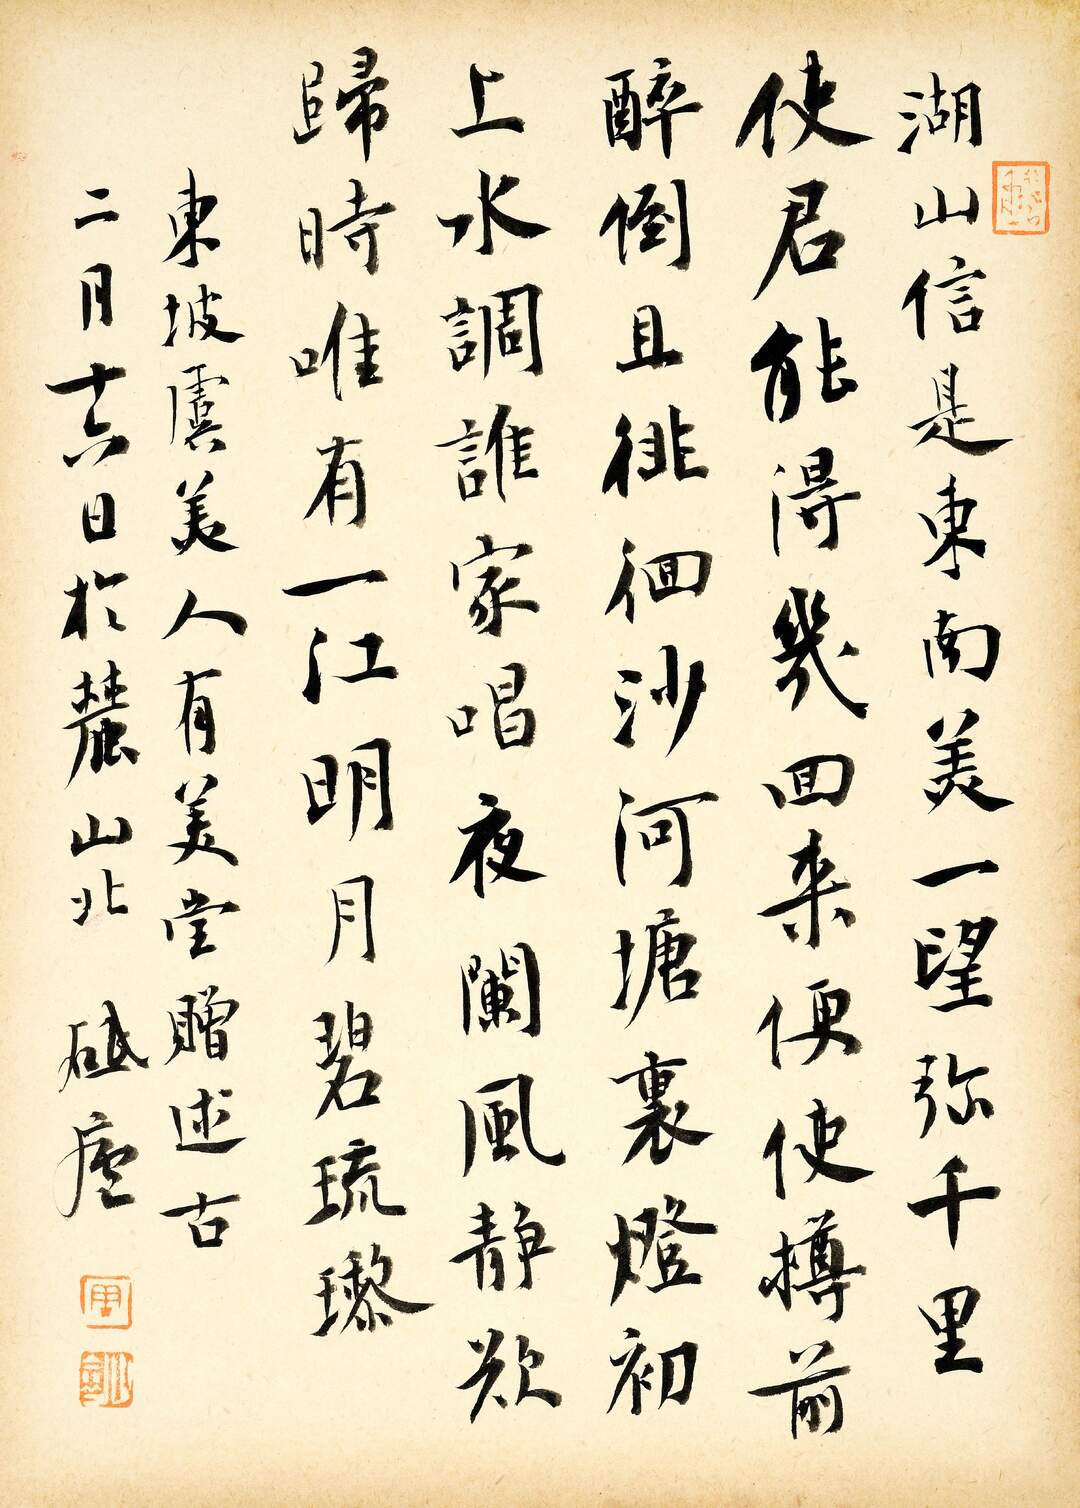 湖山信是東南美一望弥千里
使君能得幾回来便使樽前
醉倒且徘徊沙河塘裏燈初
上水調誰家唱夜闌風靜欲
歸時唯有一江明月碧琉璃
東坡虞美人有美堂贈述古
二月十六日於麓山北 砥廬